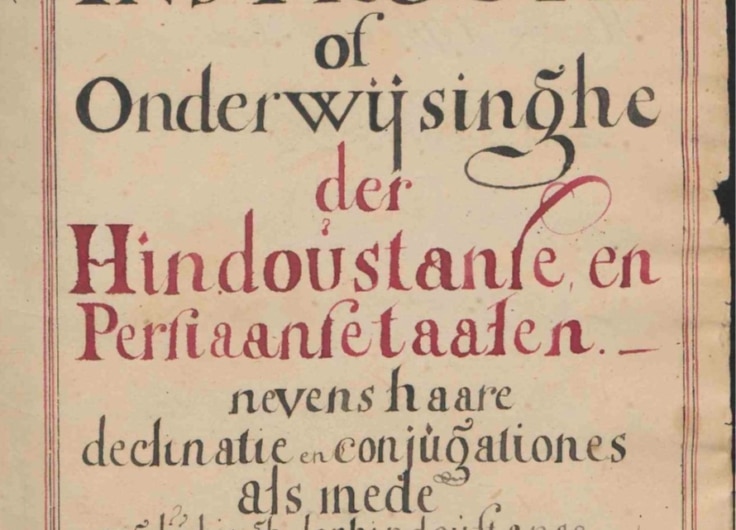 of
Onderwijsinghe
der
Hindoustanse, en
Persiaansetaalen. —
nevens haare
declinatie en conjugationes
als mede